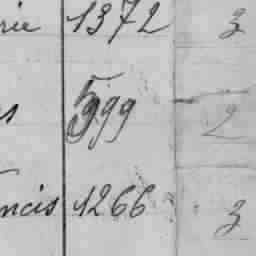 rie 1372 3
s 599 2
ncis 1266 3